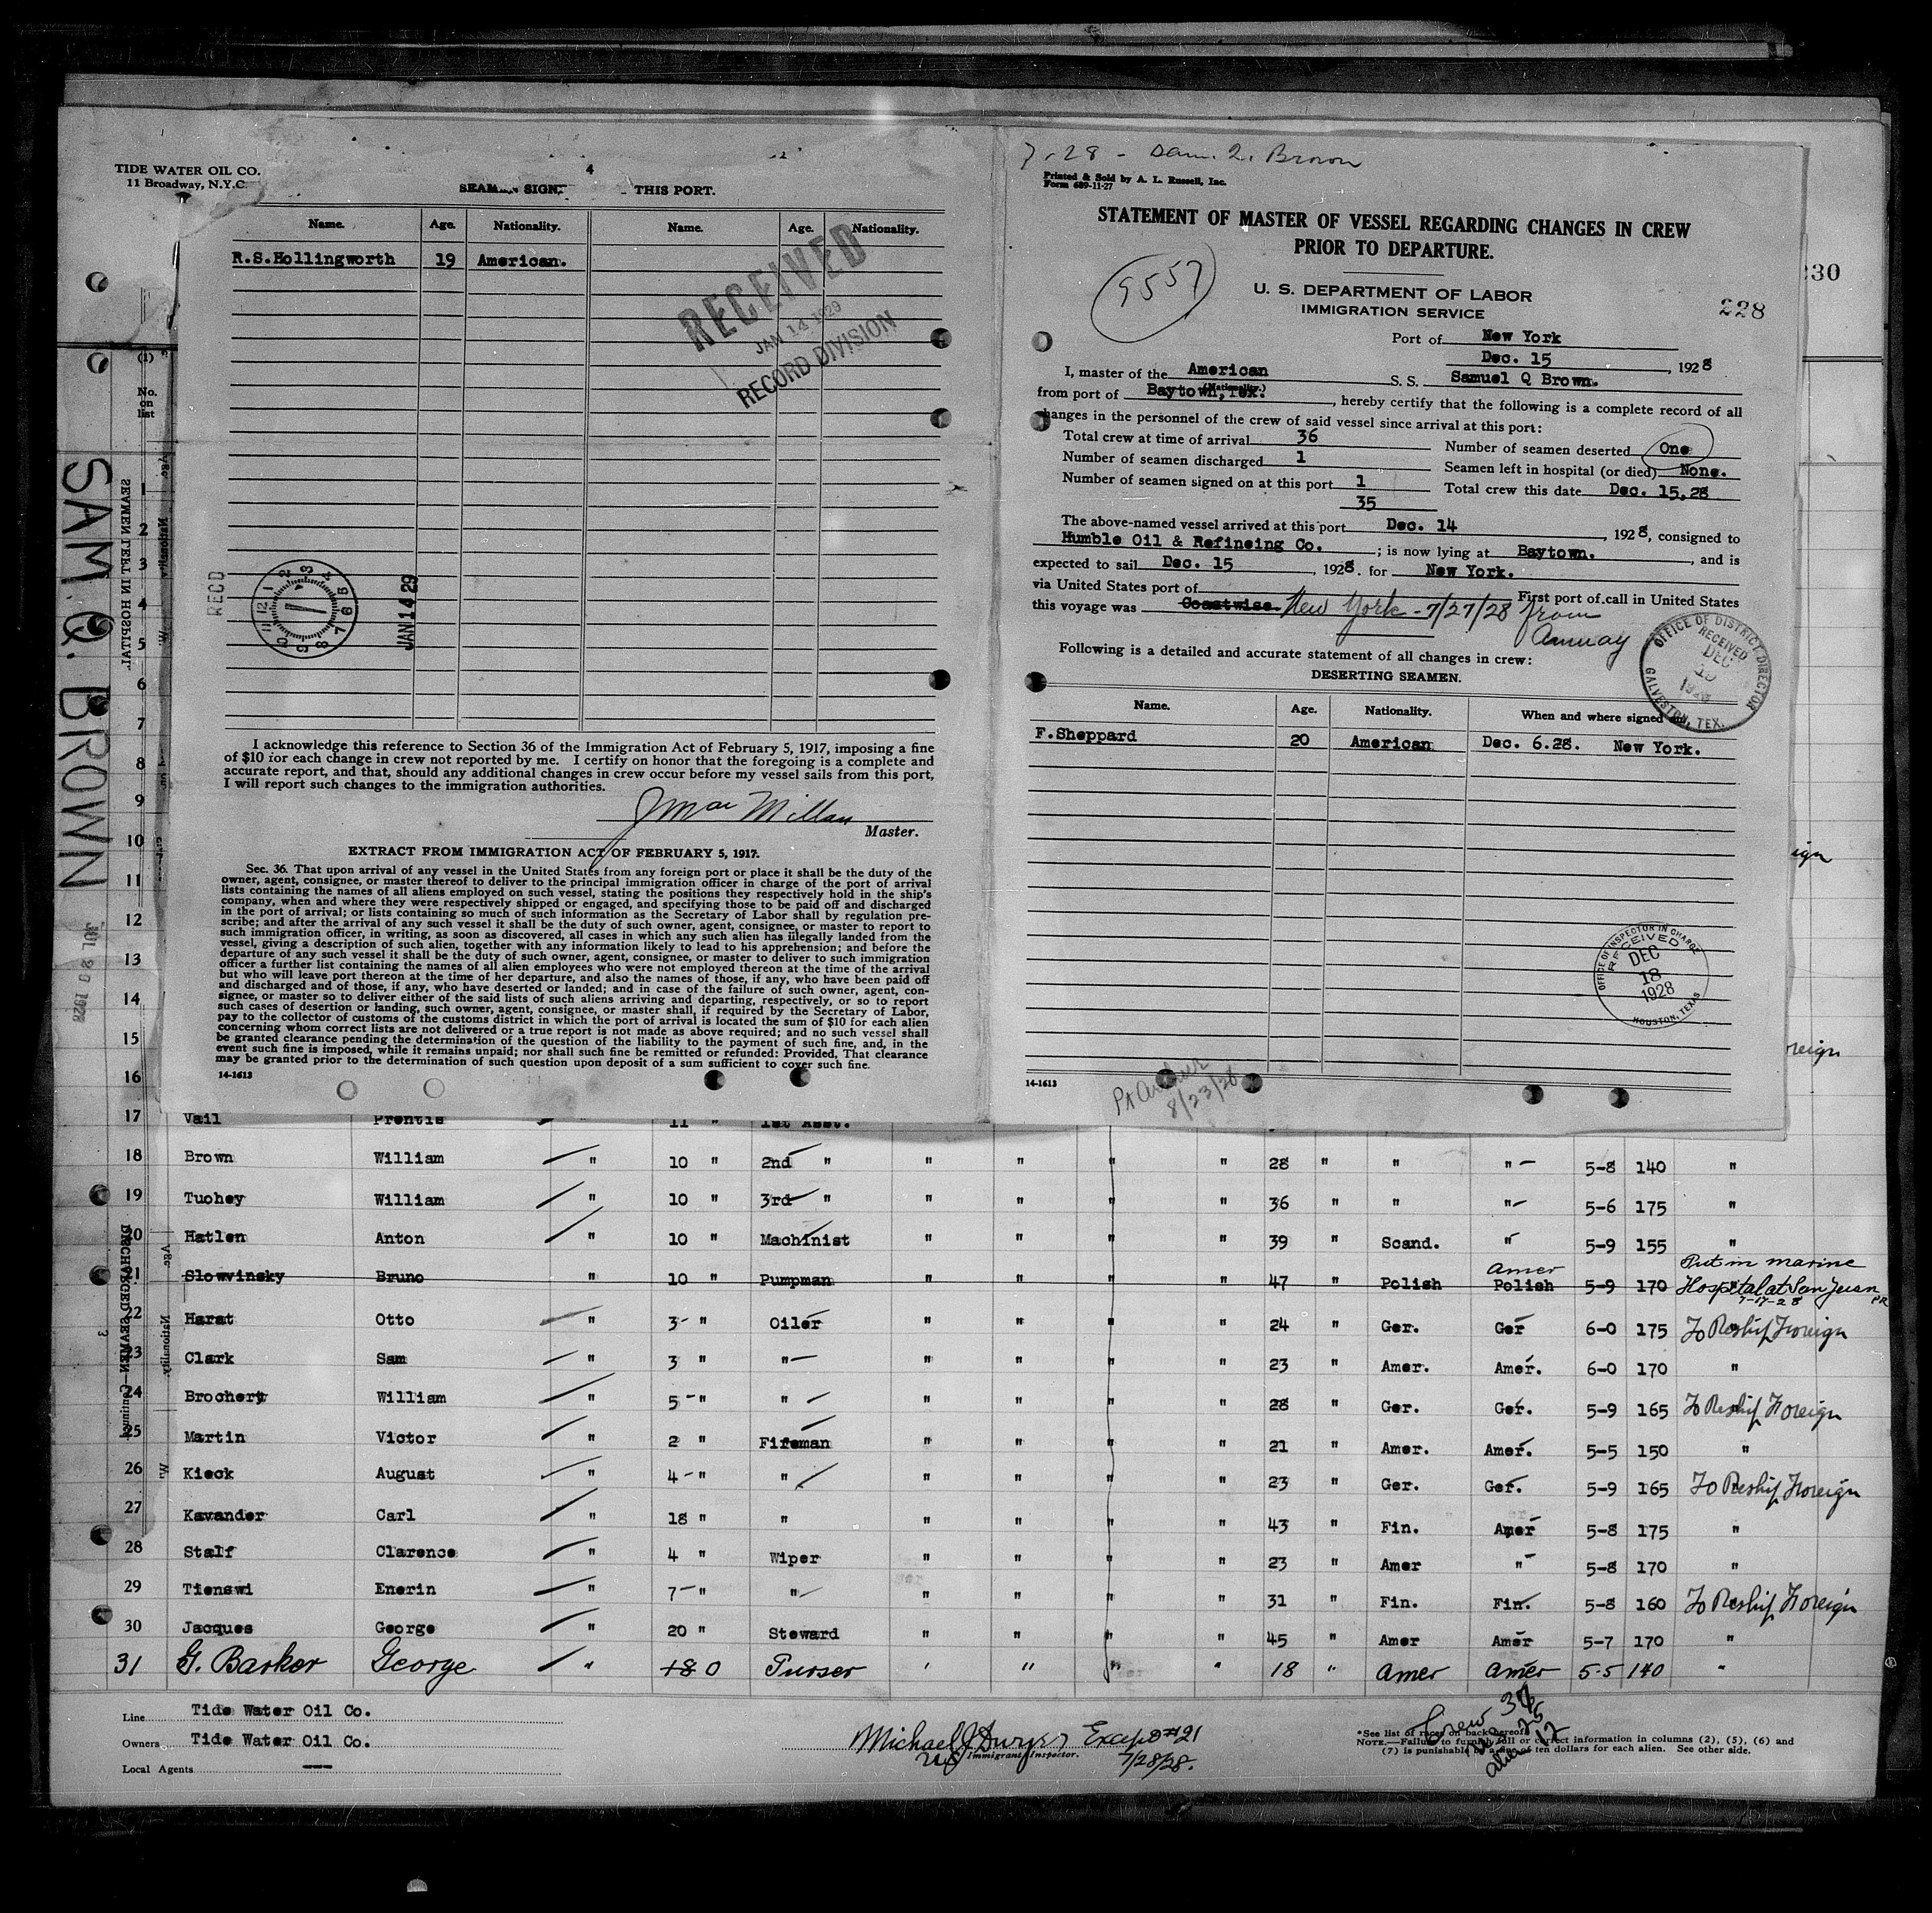 TIDE WATER OIL CO.
11 Broadway, N.Y.C.
4
SEAMEN SIGN THIS PORT.
Name. Age. Nationality. Name. Age. Nationality.
R.S.Hollingworth 19 American.
RECEIVED
JAN 14 1929
RECORD DIVISION
REC'D
JAN 14 29
I acknowledge this reference to Section 36 of the Immigration Act of February 5, 1917, imposing a fine
of $10 for each change in crew not reported by me. I certify on honor that the foregoing is a complete and
accurate report, and that, should any additional changes in crew occur before my vessel sails from this port,
I will report such changes to the immigration authorities.
Master.
EXTRACT FROM IMMIGRATION ACT OF FEBRUARY 5, 1917.
Sec. 36. That upon arrival of any vessel in the United States from any foreign port or place it shall be the duty of the
owner, agent, consignee, or master thereof to deliver to the principal immigration officer in charge of the port of arrival
lists containing the names of all aliens employed on such vessel, stating the positions they respectively hold in the ship's
company, when and where they were respectively shipped or engaged, and specifying those to be paid off and discharged
in the port of arrival; or lists containing so much of such information as the Secretary of Labor shall by regulation pre-
scribe; and after the arrival of any such vessel it shall be the duty of such owner, agent, consignee, or master to report to
such immigration officer, in writing, as soon as discovered, all cases in which any such alien has illegally landed from the
vessel, giving a description of such alien, together with any information likely to lead to his apprehension; and before the
departure of any such vessel it shall be the duty of such owner, agent, consignee, or master to deliver to such immigration
officer a further list containing the names of all alien employees who were not employed thereon at the time of the arrival
but who will leave port thereon at the time of her departure, and also the names of those, if any, who have been paid off
and discharged and of those, if any, who have deserted or landed; and in case of the failure of such owner, agent, con-
signee, or master so to deliver either of the said lists of such aliens arriving and departing, respectively, or so to report
such cases of desertion or landing, such owner, agent, consignee, or master shall, if required by the Secretary of Labor,
pay to the collector of customs of the customs district in which the port of arrival is located the sum of $10 for each alien
concerning whom correct lists are not delivered or a true report is not made as above required; and no such vessel shall
be granted clearance pending the determination of the question of the liability to the payment of such fine, and, in the
event such fine is imposed, while it remains unpaid; nor shall such fine be remitted or refunded: Provided, That clearance
may be granted prior to the determination of such question upon deposit of a sum sufficient to cover such fine.
14-1613
7-28 - Sam. Q. Brown
Printed & Sold by A. L. Russell, Inc.
Form 689-11-27
STATEMENT OF MASTER OF VESSEL REGARDING CHANGES IN CREW
PRIOR TO DEPARTURE.
9557
U. S. DEPARTMENT OF LABOR
IMMIGRATION SERVICE
228
230
Port of New York
Dec. 15, 1928
I, master of the American S. S. Samuel Q Brown.
(Nationality.)
from port of Baytown, Tex., hereby certify that the following is a complete record of all
changes in the personnel of the crew of said vessel since arrival at this port:
Total crew at time of arrival 36 Number of seamen deserted One
Number of seamen discharged 1 Seamen left in hospital (or died) None.
Number of seamen signed on at this port 1 Total crew this date Dec. 15,28
35
The above-named vessel arrived at this port Dec. 14, 1928, consigned to
Humble Oil & Refineing Co.; is now lying at Baytown., and is
expected to sail Dec. 15, 1928. for New York.
via United States port of First port of call in United States
this voyage was Coastwise. New York - 7/27/28 from
Aruuay
Following is a detailed and accurate statement of all changes in crew:
DESERTING SEAMEN.
OFFICE OF DISTRICT DIRECTOR
RECEIVED
DEC
19
1928
GALVESTON, TEX.
Name. Age. Nationality. When and where signed on.
F.Sheppard 20 American Dec. 6.28. New York.
OFFICE OF INSPECTOR IN CHARGE
RECEIVED
DEC
18
1928
HOUSTON, TEXAS
14-1613
Pt Arthur
8/23/28
SAM. Q. BROWN
JUL 20 1928
(1)
No.
on
list
SEAMEN LEFT IN HOSPITAL
DISCHARGED SEAMEN—Continued
Nationality
3
1
2
3
4
5
6
7
8
9
10
11
12
13
14
15
16
17 Vail Prentis 11 " 1st Asst.
18 Brown William " 10 " 2nd " " " " " 28 " " " 5-8 140 "
19 Tuohey William " 10 " 3rd " " " " " 36 " " " 5-6 175 "
20 Hatlen Anton " 10 " Machinist " " " " 39 " Scand. " 5-9 155 "
21 Slowvinsky Bruno " 10 " Pumpman " " " " 47 " Polish Polish Amer 5-9 170 Put in marine
Hospital at San Juan PR
7-17-28
22 Harat Otto " 3 " Oiler " " " " 24 " Ger. Ger 6-0 175 To Reship Foreign
23 Clark Sam " 3 " " " " " " 23 " Amer. Amer. 6-0 170 "
24 Brochert William " 5 " " " " " " 28 " Ger. Ger. 5-9 165 To Reship Foreign
25 Martin Victor " 2 " Fireman " " " " 21 " Amer. Amer. 5-5 150 "
26 Kieck August " 4 " " " " " " 23 " Ger. Ger. 5-9 165 To Reship Foreign
27 Kavander Carl " 18 " " " " " " 43 " Fin. Amer 5-8 175 "
28 Stalf Clarence " 4 " Wiper " " " " 23 " Amer " 5-8 170 "
29 Tienswi Enerin " 7 " " " " " " 31 " Fin. Fin. 5-8 160 To Reship Foreign
30 Jacques George " 20 " Steward " " " " 45 " Amer Amer 5-7 170 "
31 G. Barker George " 18 0 Purser " " " " 18 " Amer Amer 5-5 140 "
Line Tide Water Oil Co.
Owners Tide Water Oil Co.
Local Agents
Michael J Dwyer Except #21
Immigrant Inspector. 7/28/28.
Crew 37
*See list of races on back hereof.
NOTE.—Failure to furnish full or correct information in columns (2), (5), (6) and
(7) is punishable by a fine of ten dollars for each alien. See other side.